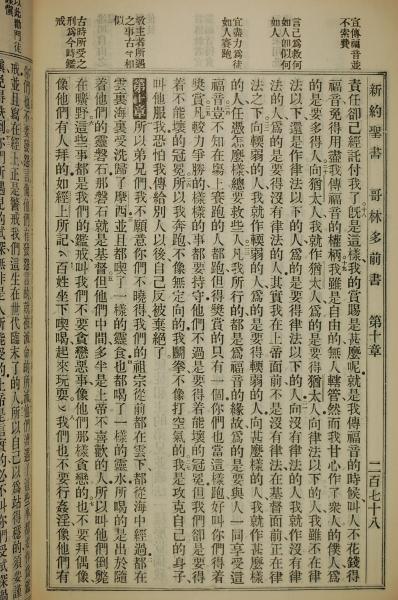 新約聖書 哥林多前書 第十章 二百七十八
宣傳福音並不索費
言己為救何如人卽似何如人
宜盡力為徒如人賽跑
敬主者所遇之事古今相似
古時所受之刑為今時鑑戒
責任卻已經託付我了旣是這樣我的賞賜是甚麼呢就是我傳福音的時候叫人不花錢得
福音免得用盡我傳福音的權柄我雖是自由的無人轄管然而我甘心作了衆人的僕人為
的是要多得人向猶太人我就作猶太人為的是要得猶太人向律法以下的人我雖不在律
法以下還是作律法以下的人為的是要得律法以下的人向沒有律法的人我就作沒有律
法的人為的是要得沒有律法的人其實我在上帝面前不是沒有律法在基督面前正在律
法之下向輭弱的人我就作輭弱的人為的是要得輭弱的人向甚麼樣的人我就作甚麼樣
的人任憑怎麼樣總要救些人凡我所行的都是為福音的緣故為的是要與人一同享受這
福音豈不知在塲上賽跑的人都跑但得獎賞的只有一個你們也當這樣跑好叫你們得着
獎賞凡較力爭勝的樣樣的事都要持守他們不過是要得着能壞的冠冕但我們卻是要得
着不能壞的冠冕所以我奔跑不像無定向的我鬭拳不像打空氣的我是攻克自己的身子
叫他服我恐怕我傳給別人以後自己反被棄絕了
第十章 所以弟兄們我不願意你們不曉得我們的祖宗從前都在雲下都從海中經過都在
雲裏海裏受洗歸了摩西並且都喫了一樣的靈食也都喝了一樣的靈水所喝的是出於隨
着他們的靈磐石那磐石就是基督但他們中間多半是上帝不喜歡的人所以叫他們倒斃
在曠野這些事都是我們的鑑戒叫我們不要貪戀惡事像他們那樣貪戀的也不要拜偶像
像他們有人拜的如經上所記百姓坐下喫喝起來玩耍我們也不要行姦淫像他們有